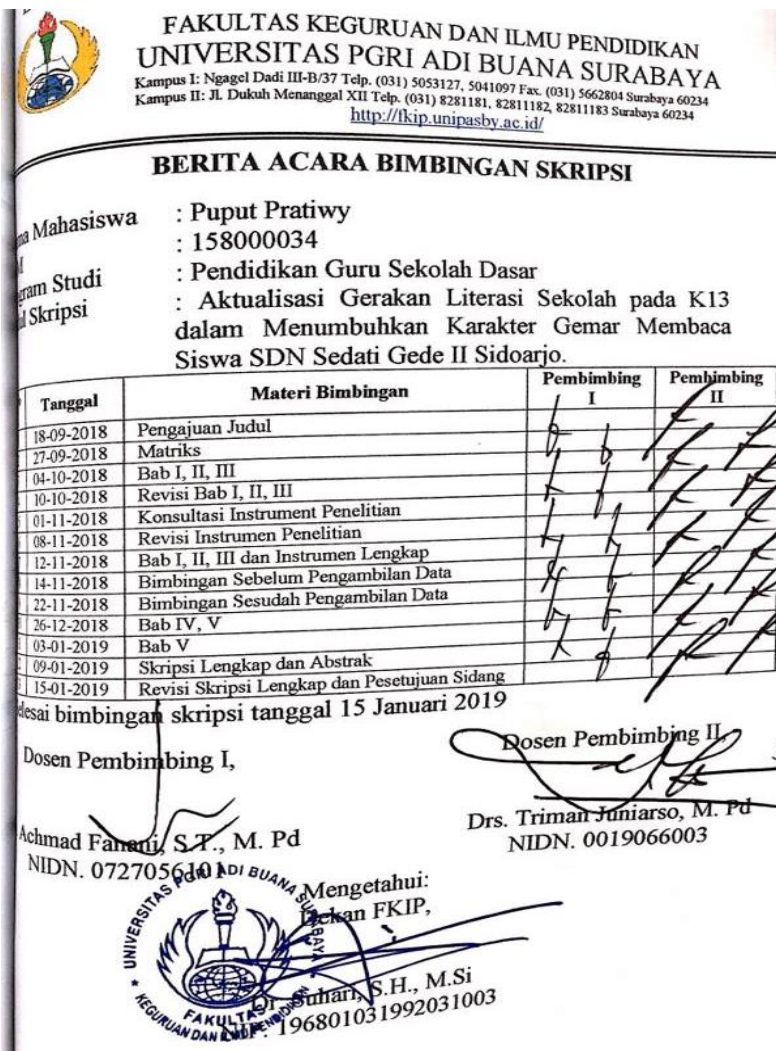 FAKULTAS KEGURUAN DAN ILMU PENDIDIKAN
UNIVERSITAS PGRI ADI BUANA SURABAYA
Kampus I: Ngagel Dadi III-B/37 Telp. (031) 5053127, 5041097 Fax. (031) 5662804 Surabaya 60234
Kampus II: Jl. Dukuh Menanggal XII Telp. (031) 8281181, 82811182, 82811183 Surabaya 60234
http://fkip.unipasby.ac.id/
BERITA ACARA BIMBINGAN SKRIPSI
Mahasiswa : Puput Pratiwy
: 158000034
Studi : Pendidikan Guru Sekolah Dasar
Skripsi : Aktualisasi Gerakan Literasi Sekolah pada K13
dalam Menumbuhkan Karakter Gemar Membaca
Siswa SDN Sedati Gede II Sidoarjo.
Tanggal Materi Bimbingan Pembimbing I Pembimbing II
18-09-2018 Pengajuan Judul
27-09-2018 Matriks
04-10-2018 Bab I, II, III
10-10-2018 Revisi Bab I, II, III
01-11-2018 Konsultasi Instrument Penelitian
08-11-2018 Revisi Instrumen Penelitian
12-11-2018 Bab I, II, III dan Instrumen Lengkap
14-11-2018 Bimbingan Sebelum Pengambilan Data
22-11-2018 Bimbingan Sesudah Pengambilan Data
26-12-2018 Bab IV, V
03-01-2019 Bab V
09-01-2019 Skripsi Lengkap dan Abstrak
15-01-2019 Revisi Skripsi Lengkap dan Pesetujuan Sidang
elesai bimbingan skripsi tanggal 15 Januari 2019
Dosen Pembimbing I,
Achmad Fanani, S.T., M. Pd
NIDN. 0727056101
Dosen Pembimbing II,
Drs. Triman Juniarso, M. Pd
NIDN. 0019066003
Mengetahui:
Dekan FKIP,
Dr. Suhari, S.H., M.Si
NIP. 196801031992031003
UNIVERSITAS PGRI ADI BUANA SURABAYA
FAKULTAS
KEGURUAN DAN ILMU PENDIDIKAN